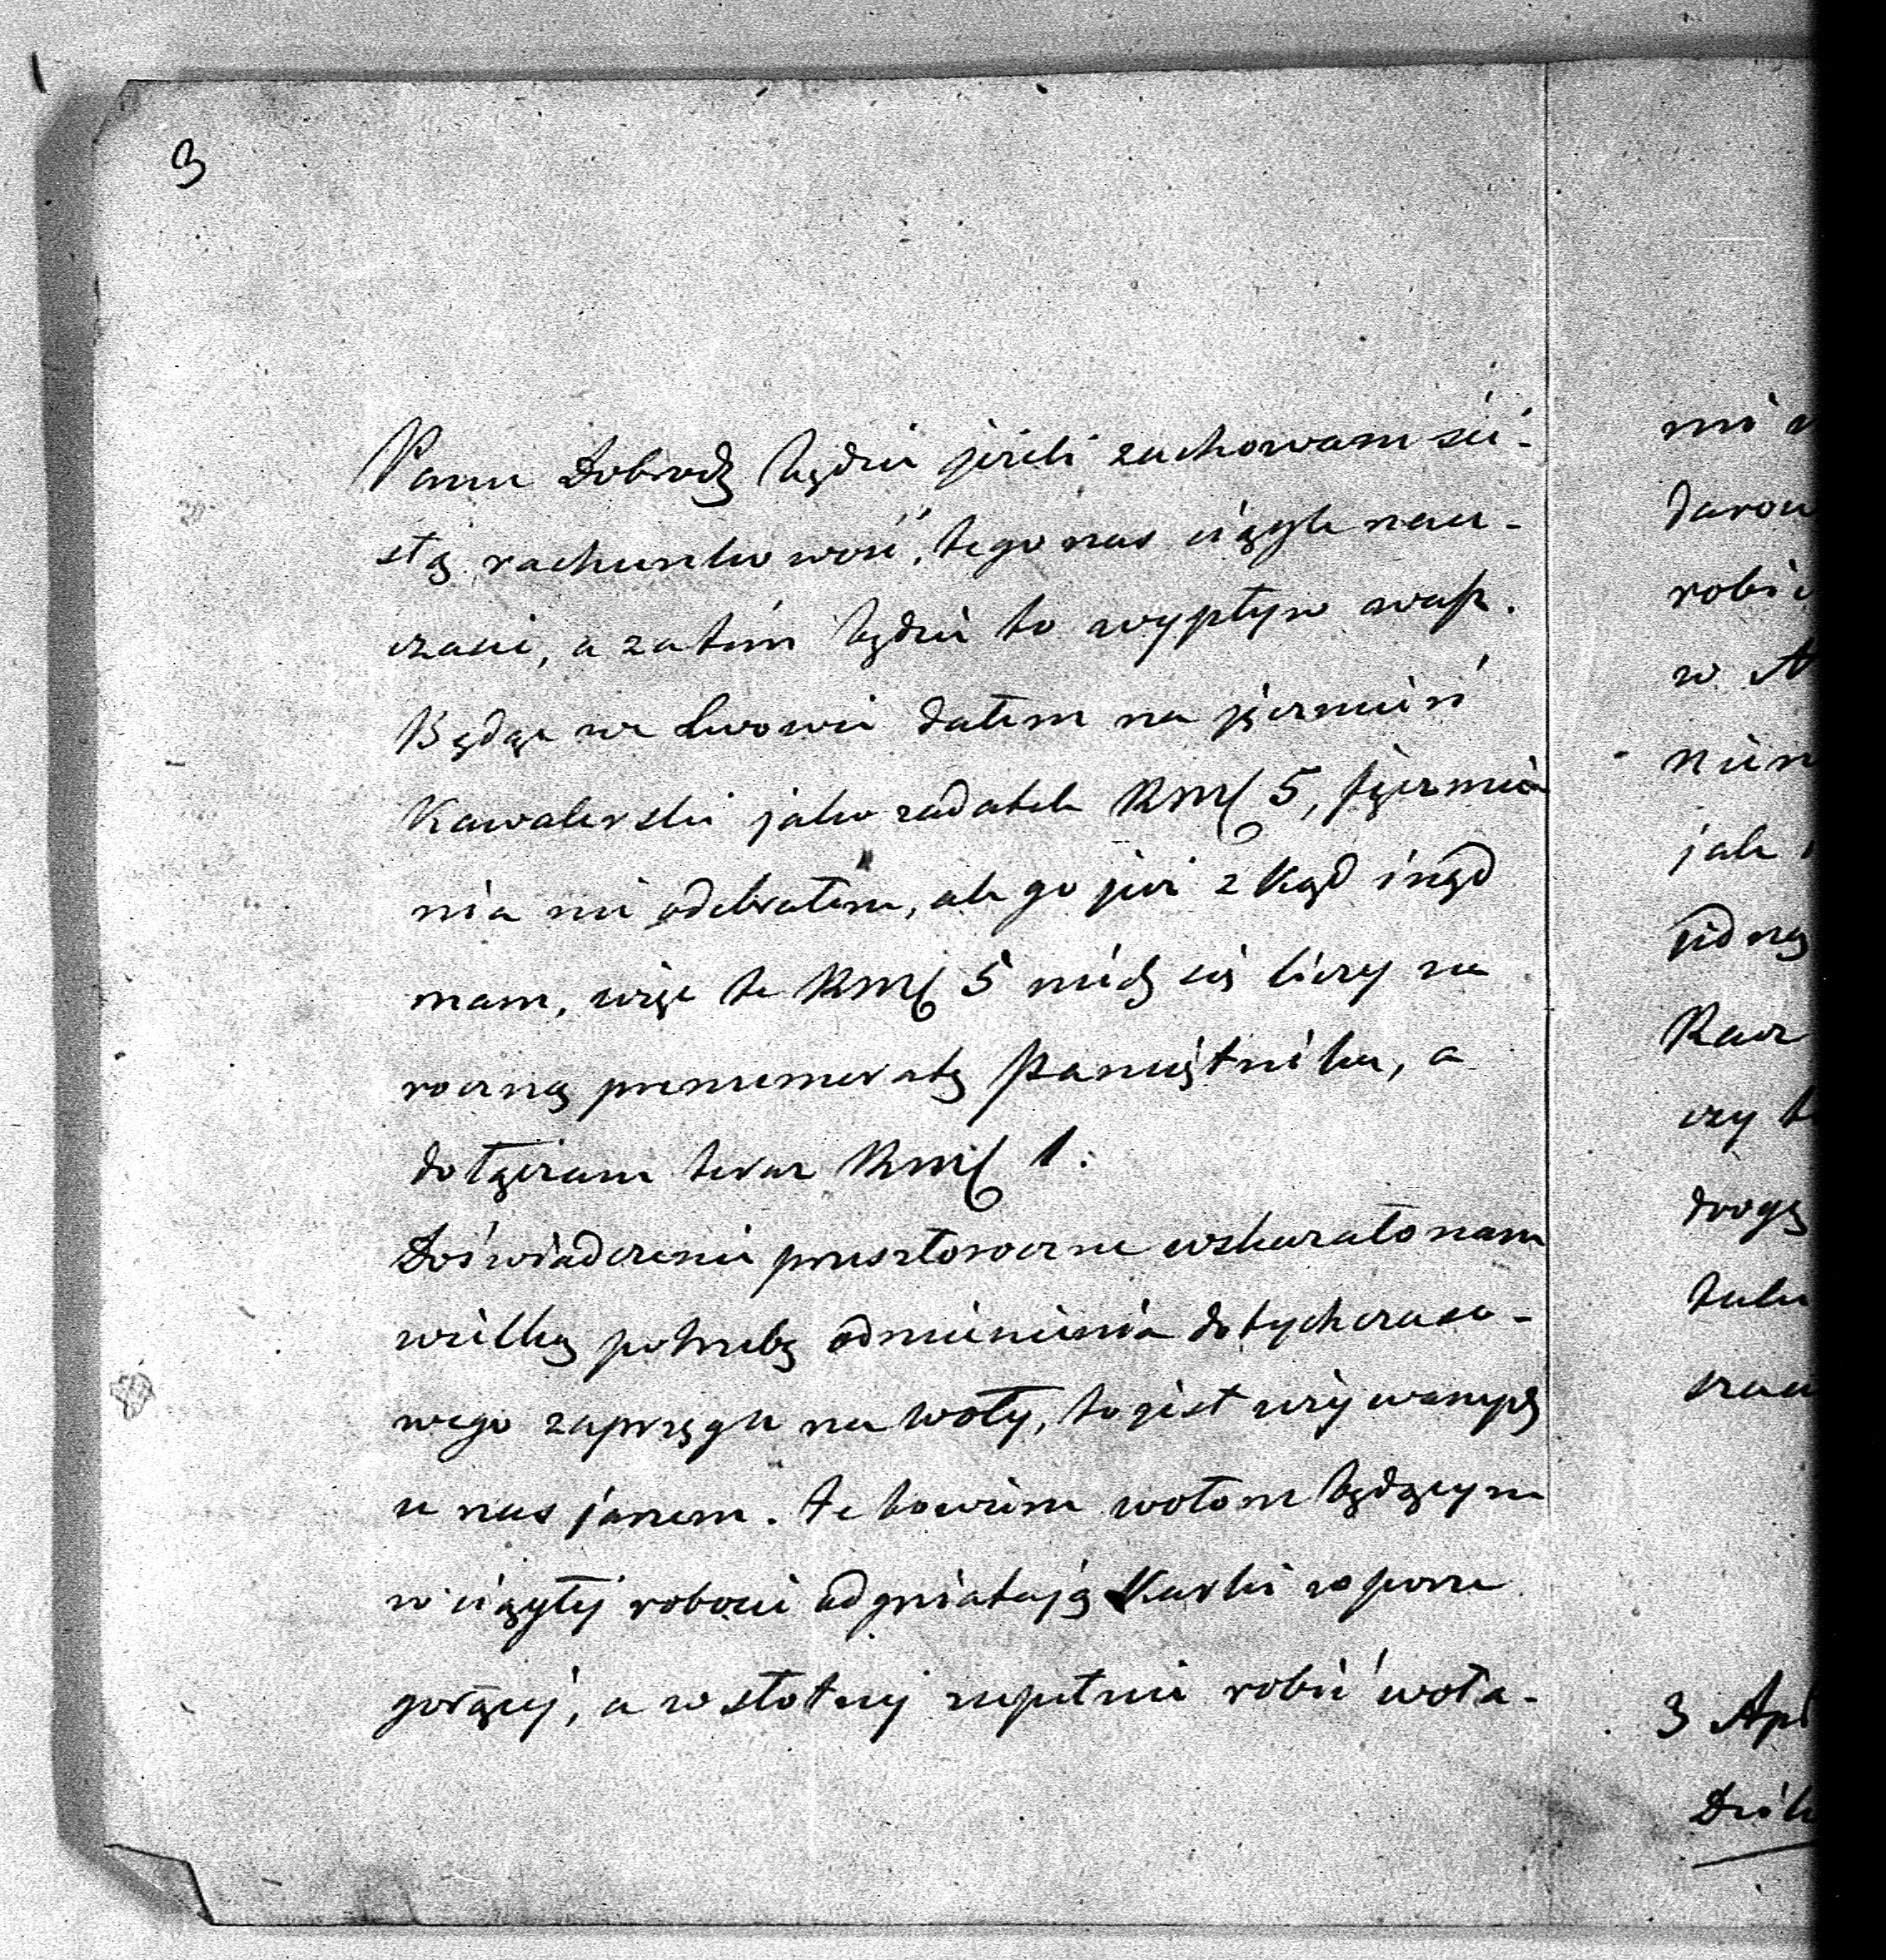 3
Panu Dobrodz będzie jeżeli zachowam ści-
słą rachunkowość, tego nas ciągle nau-
czacie, a zatem będzie to wypływ wasz.
Będąc we Lwowie dałem na jęczmień
Kawalerski jako zadatek Rmf 5, jęczmie
nia nie odebrałem, ale go już z kąd inąd
mam, więc te Rmf 5 niech się liczy na
roczną prenumeratę Pamiętnika, a
dołączam teraz Rmf 1.
Doświadczenie przeszłoroczne wskazało nam
wielką potrzebę odmienienia dotychczaso-
wego zaprzęgu na woły, to jest używanych
u nas jarzem. Te bowiem wołom będącym
w ciągłej robocie odgniatają Karki w porze
gorącej, a w słotnej zupełnie robić woła-
mi
darow
robi
w
nien
jak
jedną
Racz
czy
drogą
3 Apr